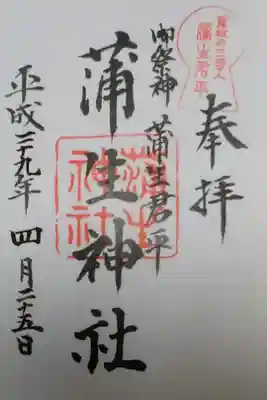 寛政の三奇人
蒲生君平
奉拝
御祭神 蒲生君平
蒲生神社
蒲生神社
平成二十九年 四月二十五日